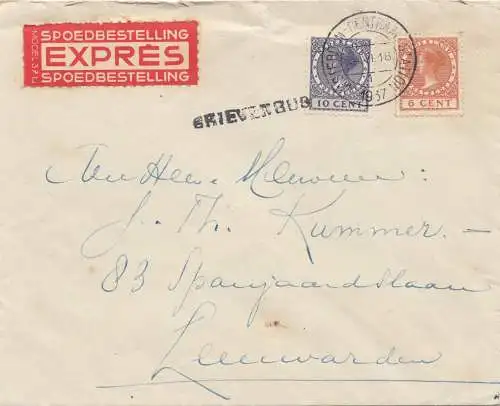 SPOEDBESTELLING
EXPRÈS
SPOEDBESTELLING
MODEL
CENTRAAL
1937
10 CENT
6 CENT
BRIEVENBUS
Aan Heer Mevrouw:
J. Th. Kummer. —
83 Spanjaardslaan
Leeuwarden